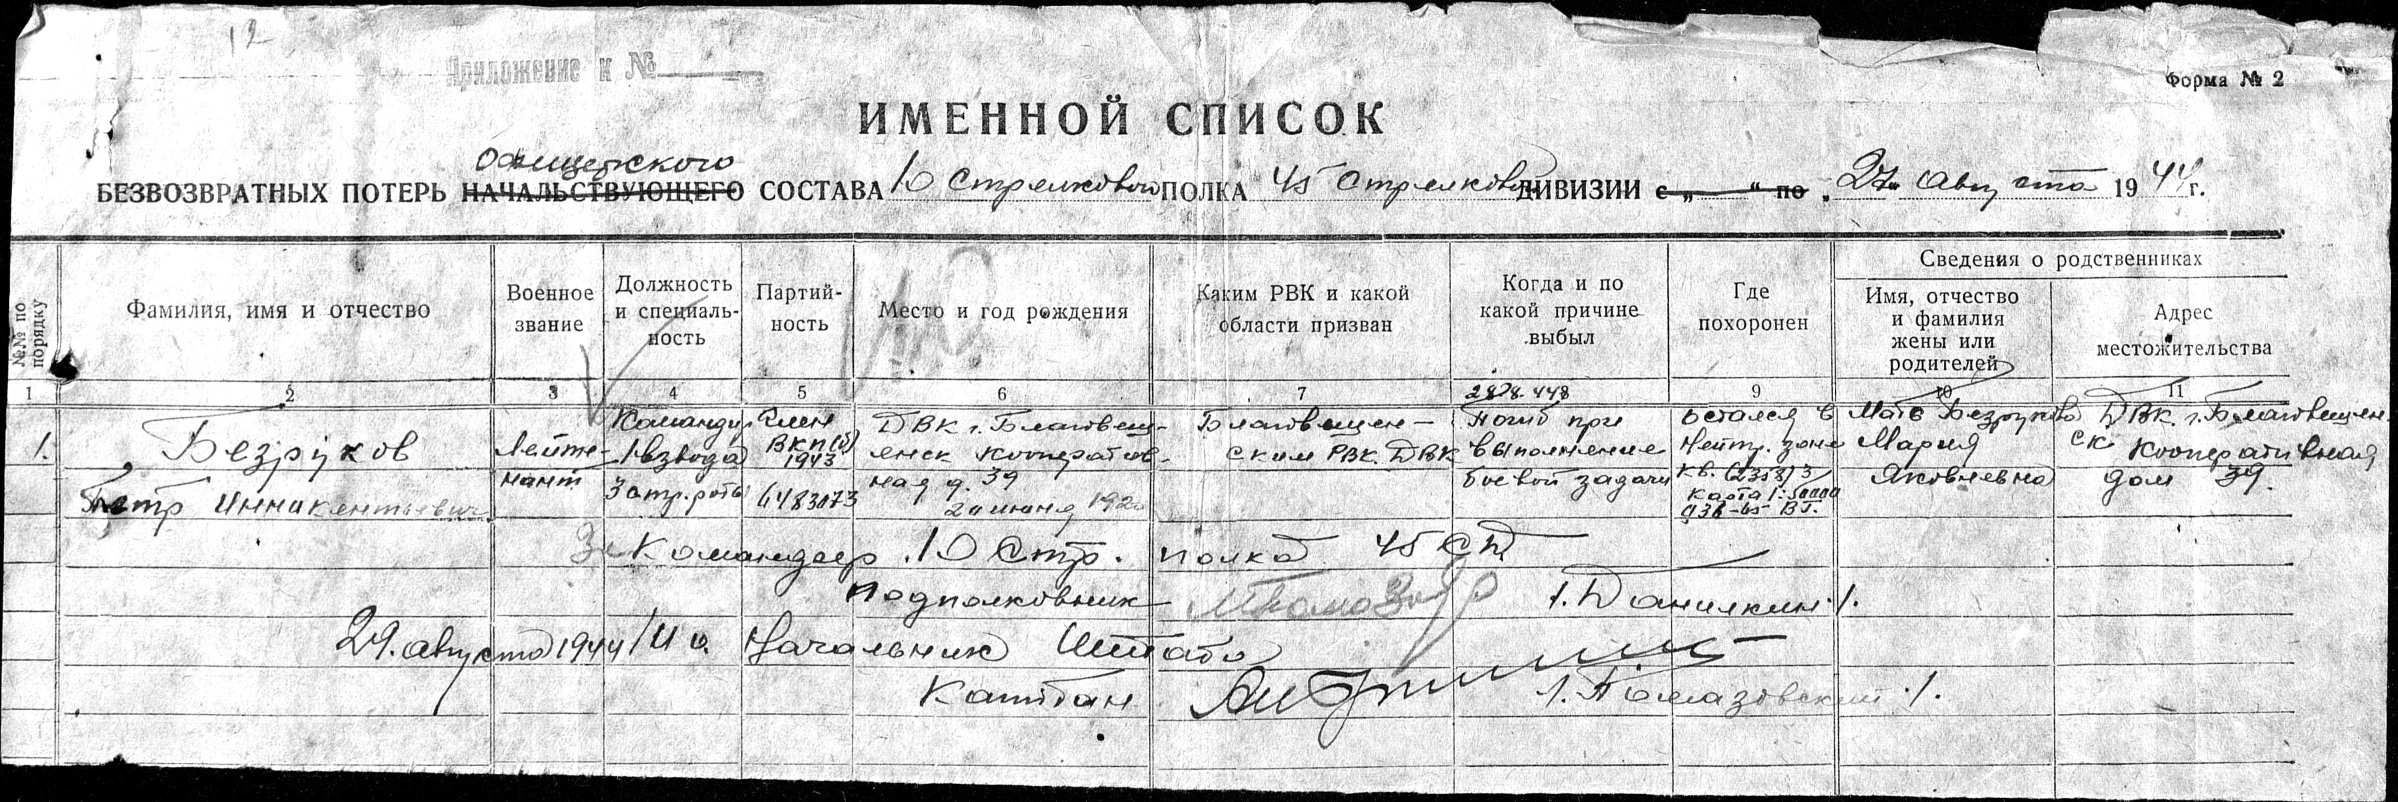 12
Приложение к №
Форма № 2
ИМЕННОЙ СПИСОК
офицерского
БЕЗВОЗВРАТНЫХ ПОТЕРЬ НАЧАЛЬСТВУЮЩЕГО СОСТАВА 10 Стрелковой ПОЛКА 45 Стрелковой ДИВИЗИИ с „ “ по „27“ Августа 1944 г.
№№ по порядку
Фамилия, имя и отчество
Военное
звание
Должность
и специаль-
ность
Партий-
ность
Место и год рождения
Каким РВК и какой
области призван
Когда и по
какой причине
выбыл
Где
похоронен
Сведения о родственниках
Имя, отчество
и фамилия
жены или
родителей
Адрес
местожительства
1 2 3 4 5 6 7 9 10 11
1.
Безруков
Петр Иннокентьевич
Лейте-
нант
Командир
1 взвода
3 стр. роты
Член
ВКП(б)
1943
6483073
ДВК г. Благовещ-
енск Кооператив-
ная д. 39
20 июня 1920
Благовещен-
ским РВК ДВК
Погиб при
выполнение
боевой задачи
остался в
Нейтр. зоне
кв. (2358) 3
карта 1:50000
Мать Безрукова
Мария
Яковлевна
ДВК г. Благовещен
ск Кооперативная
дом 39.
Командир 10 Стр. полка 45 СД
Подполковник /. Данилкин ./.
29. августа 1944 И о. Начальник Штаба
Капитан /. Помазовский ./.